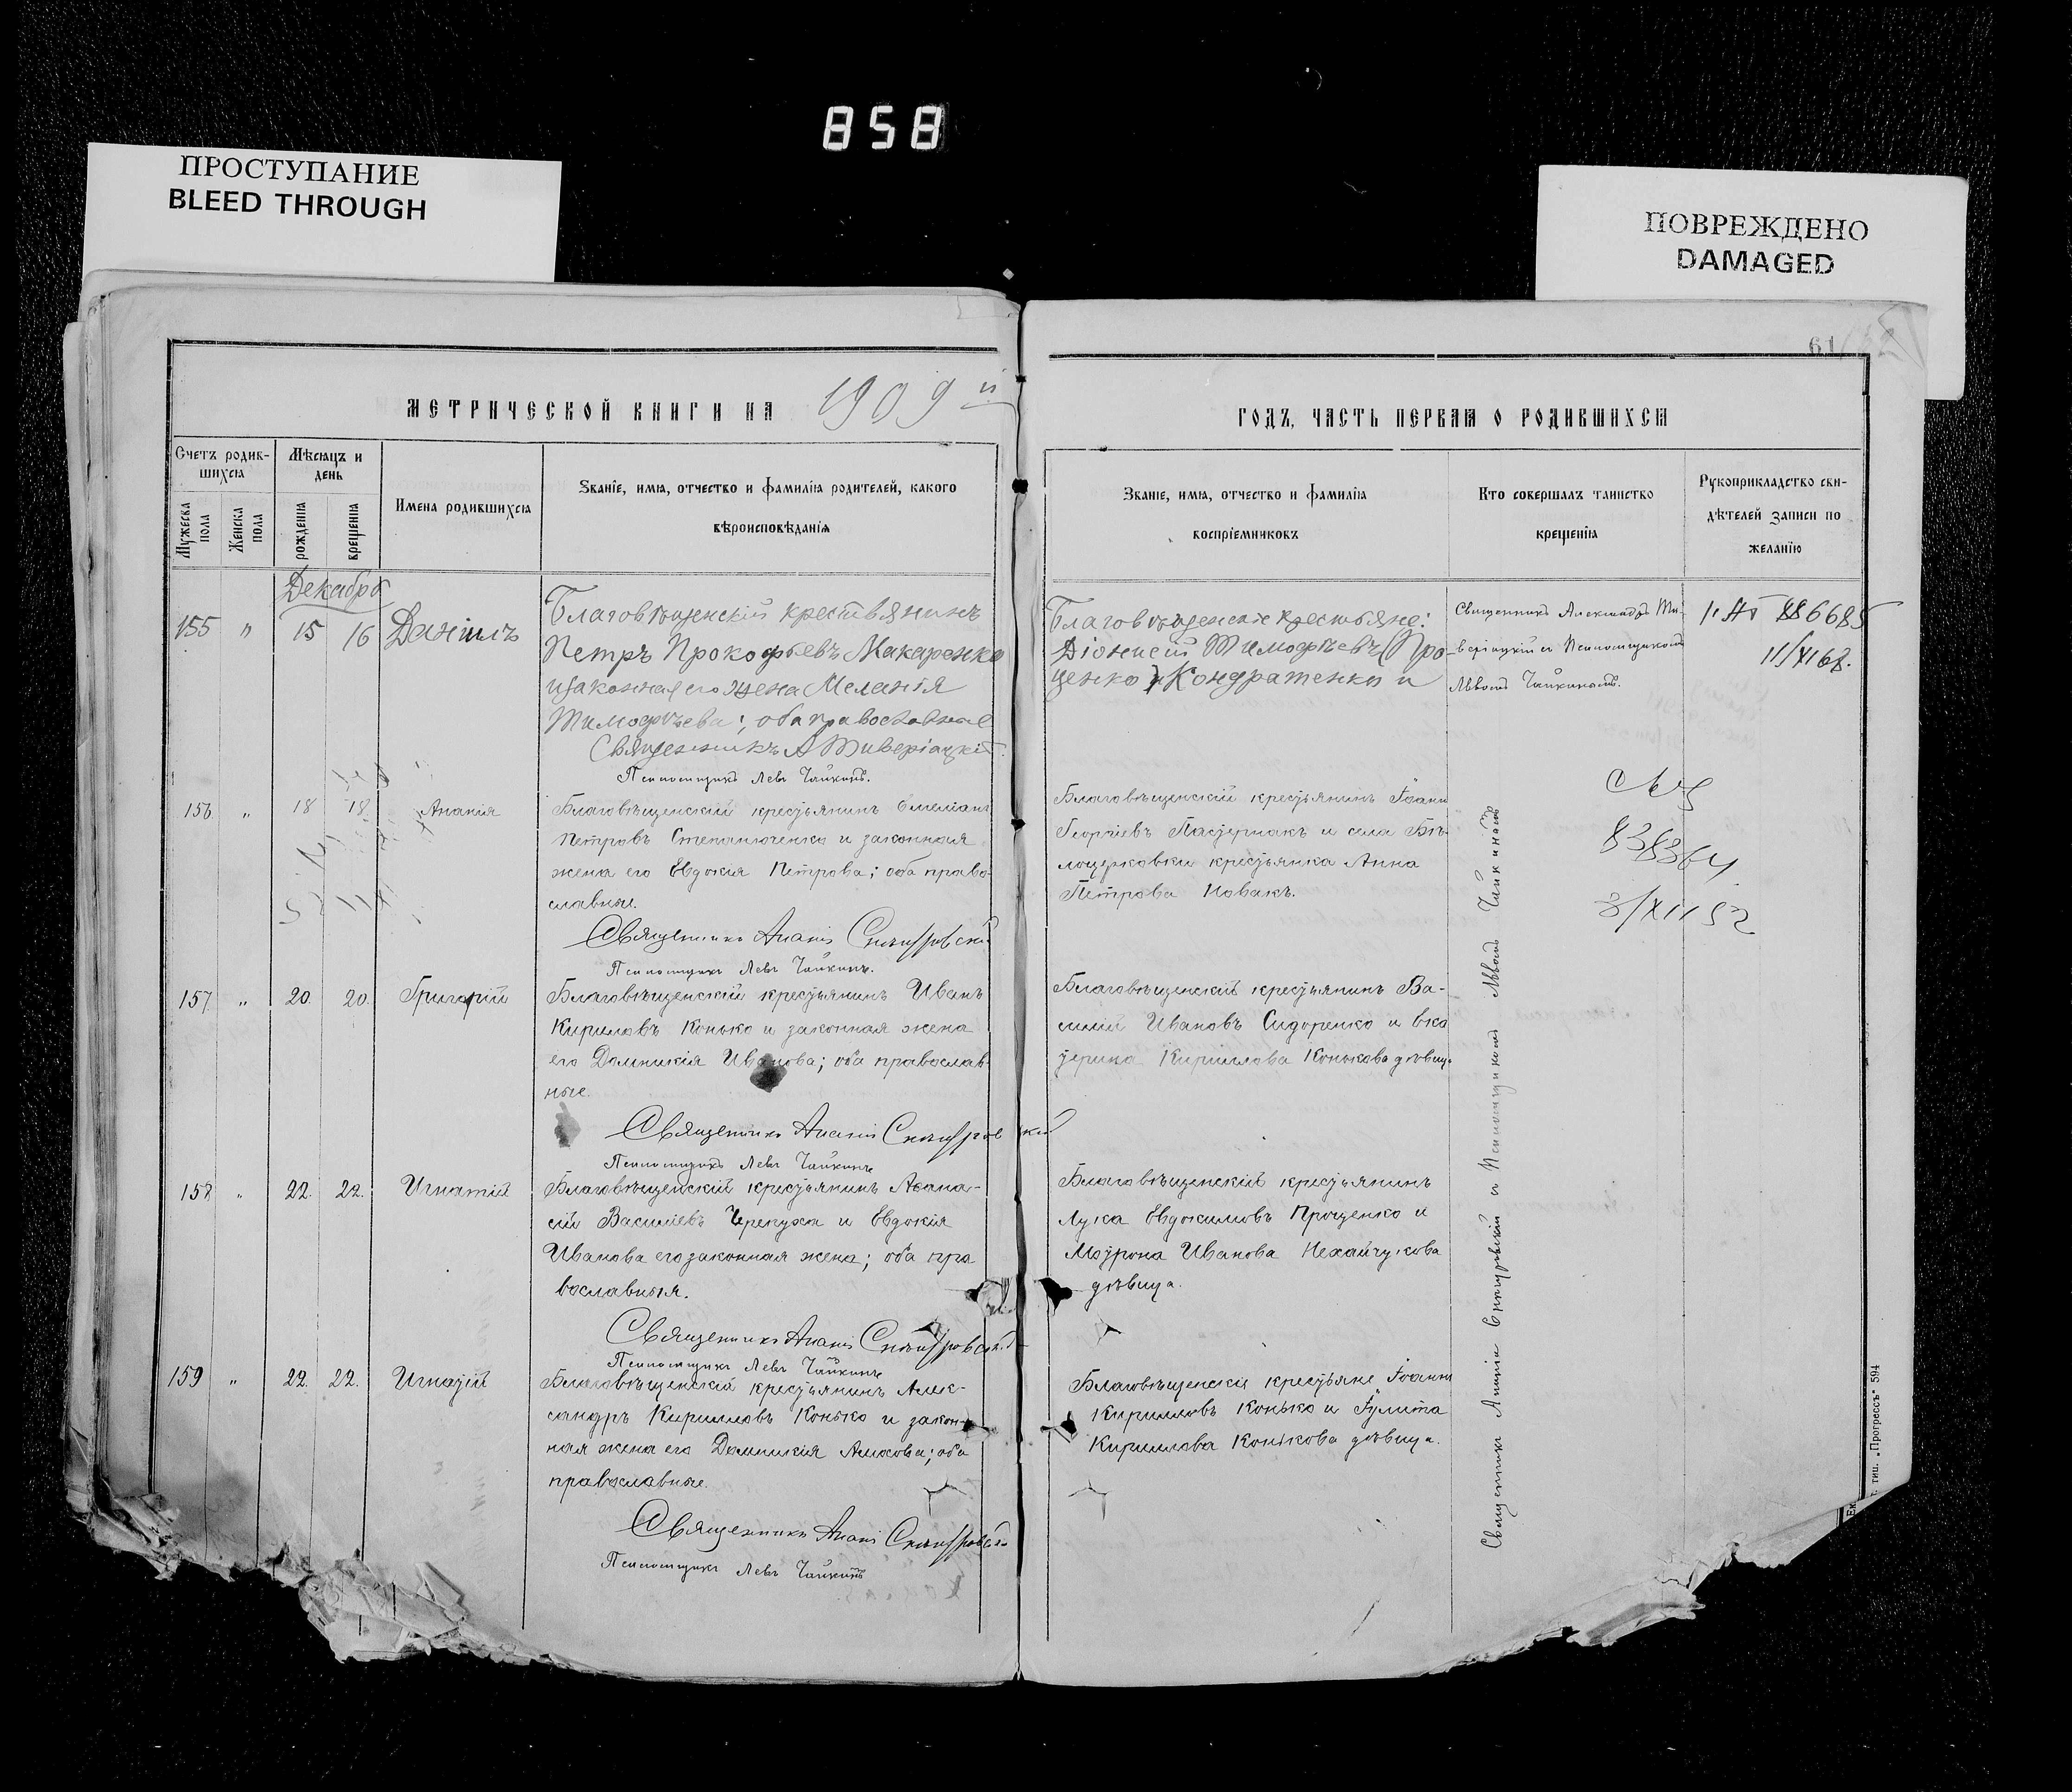 858
ПРОСТУПАНИЕ
BLEED THROUGH
ПОВРЕЖДЕНО
DAMAGED
61
МЕТРИЧЕСКОЙ КНИГИ НА 1909 й
ГОДЪ, ЧАСТЬ ПЕРВАЯ О РОДИВШИХСЯ
Счетъ родив-
шихся
Мужеска пола
Женска пола
Мѣсяцъ и
день
рожденія
крещенія
Имена родившихся
Званіе, имя, отчество и фамилія родителей, какого
вѣроисповѣданія
Званіе, имя, отчество и фамилія
воспріемниковъ
Кто совершалъ таинство
крещенія
Рукоприкладство сви-
дѣтелей записи по
желанію
Декабрь
155 " 15 16 Даніилъ
Благовѣщенскій крестьянинъ
Петръ Прокофьевъ Макаренко
и законная его жена Меланія
Тимофѣева; оба православные
Священникъ А Тиверіацкій
Псаломщикъ Левъ Чайкинъ.
Благовѣщенскіе крестьяне:
Діонисій Тимофѣевъ (Про-
ценко) Кондратенко и
Священникъ Александръ Ти-
веріацкій съ Псаломщикомъ
Львомъ Чайкинымъ.
886685
11/XI 68.
156 " 18 18 Ананія
Благовѣщенскій крестьянинъ Емеліанъ
Петровъ Степанюченко и законная
жена его Евдокія Петрова; оба право-
славные.
Священникъ Ананій
Псаломщикъ Левъ Чайкинъ.
Благовѣщенскій крестьянинъ Іоаннъ
Георгіевъ Пастернакъ и села Бѣ-
лоцерковки крестьянка Анна
Петрова Новакъ.
838364
3/XII 52
157 " 20. 20. Григорій
Благовѣщенскій крестьянинъ Иванъ
Кириловъ Конько и законная жена
его Домникія Иванова; оба православ-
ные.
Священникъ Ананій
Псаломщикъ Левъ Чайкинъ
Благовѣщенскій крестьянинъ Ва-
силій Ивановъ Сидоренко и Ека
терина Кириллова Конькова дѣвица
158 " 22. 22. Игнатій
Благовѣщенскій крестьянинъ Аѳана-
сій Василіевъ Черепуха и Евдокія
Иванова его законная жена; оба пра
вославныя.
Священникъ Ананій
Псаломщикъ Левъ Чайкинъ
Благовѣщенскій крестьянинъ
Лука Евдокимовъ Проценко и
Мотрона Иванова Нехайчукова
дѣвица.
159 " 22. 22. Игнатій
Благовѣщенскій крестьянинъ Алек-
сандръ Кирилловъ Конько и закон-
ная жена его Домникія Амосова; оба
православные.
Священникъ Ананій
Псаломщикъ Левъ Чайкинъ
Благовѣщенскіе крестьяне Іоаннъ
Кирилловъ Конько и Іулита
Кириллова Конькова дѣвица.
Священникъ Ананій и Псаломщикомъ Львомъ Чайкинымъ
т. тип. „Прогрессъ" 594